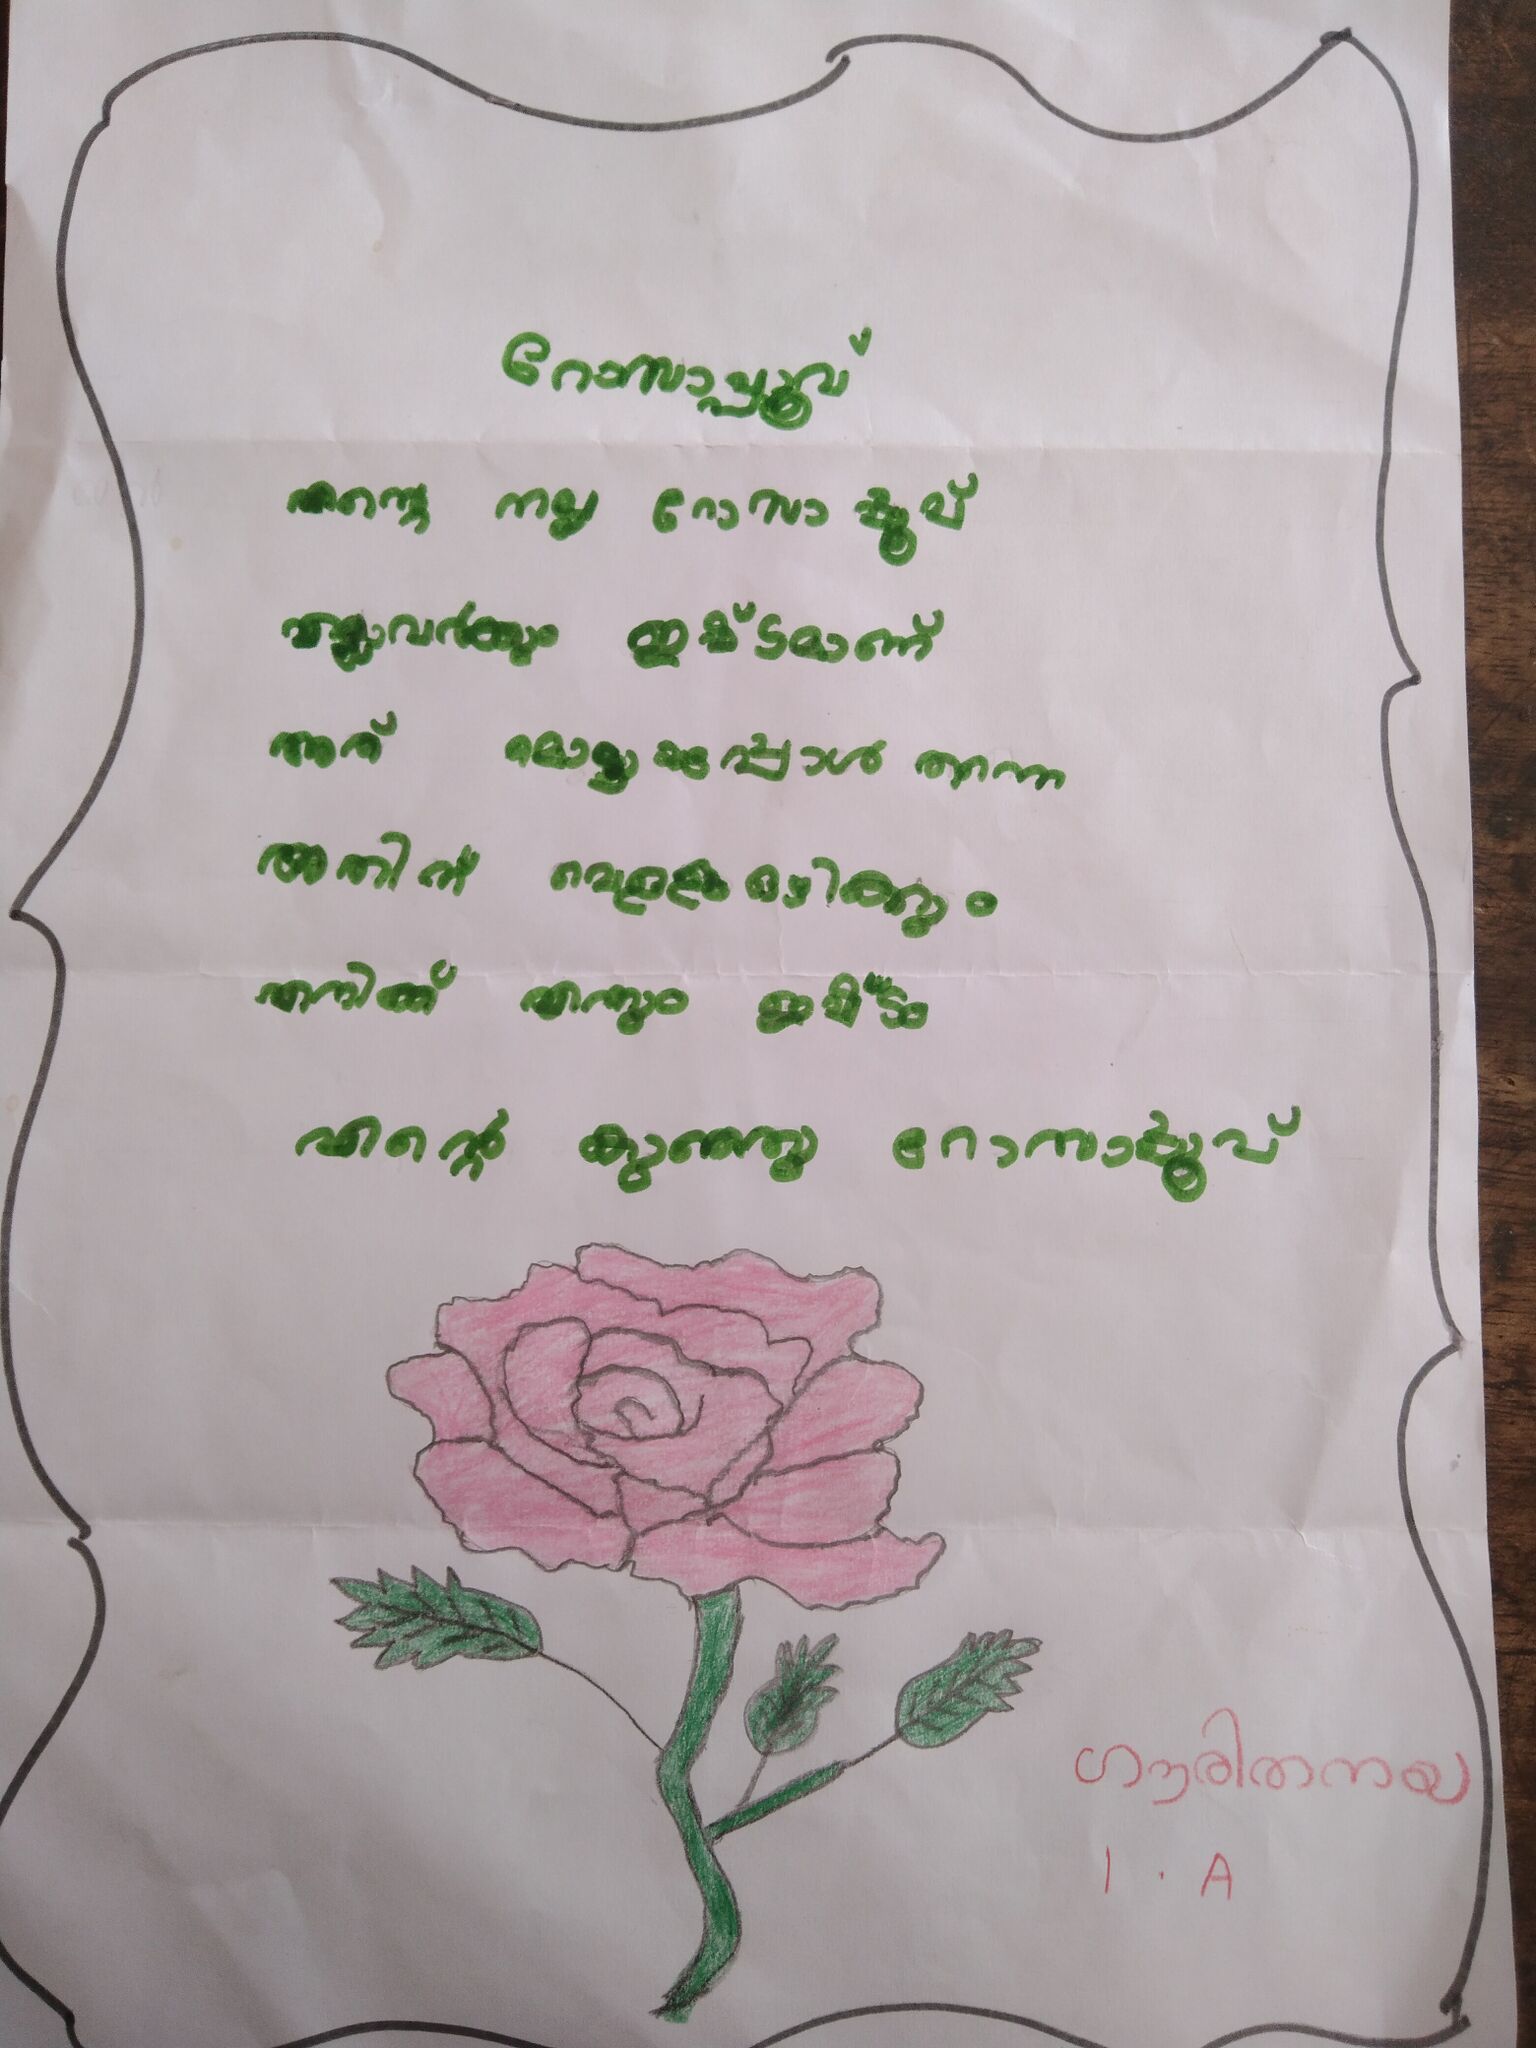 റോസാപ്പൂവ്
എന്റെ നല്ല റോസാ പ്പൂവ്
എല്ലാവർക്കും ഇഷ്ടമാണ്
അത്
അതിന് വെള്ളമൊഴിക്കും
എനിക്ക് എന്നും ഇഷ്ടം
എന്റെ കുഞ്ഞു റോസാപ്പൂവ്
ഗൗരിതനയ
1 . A